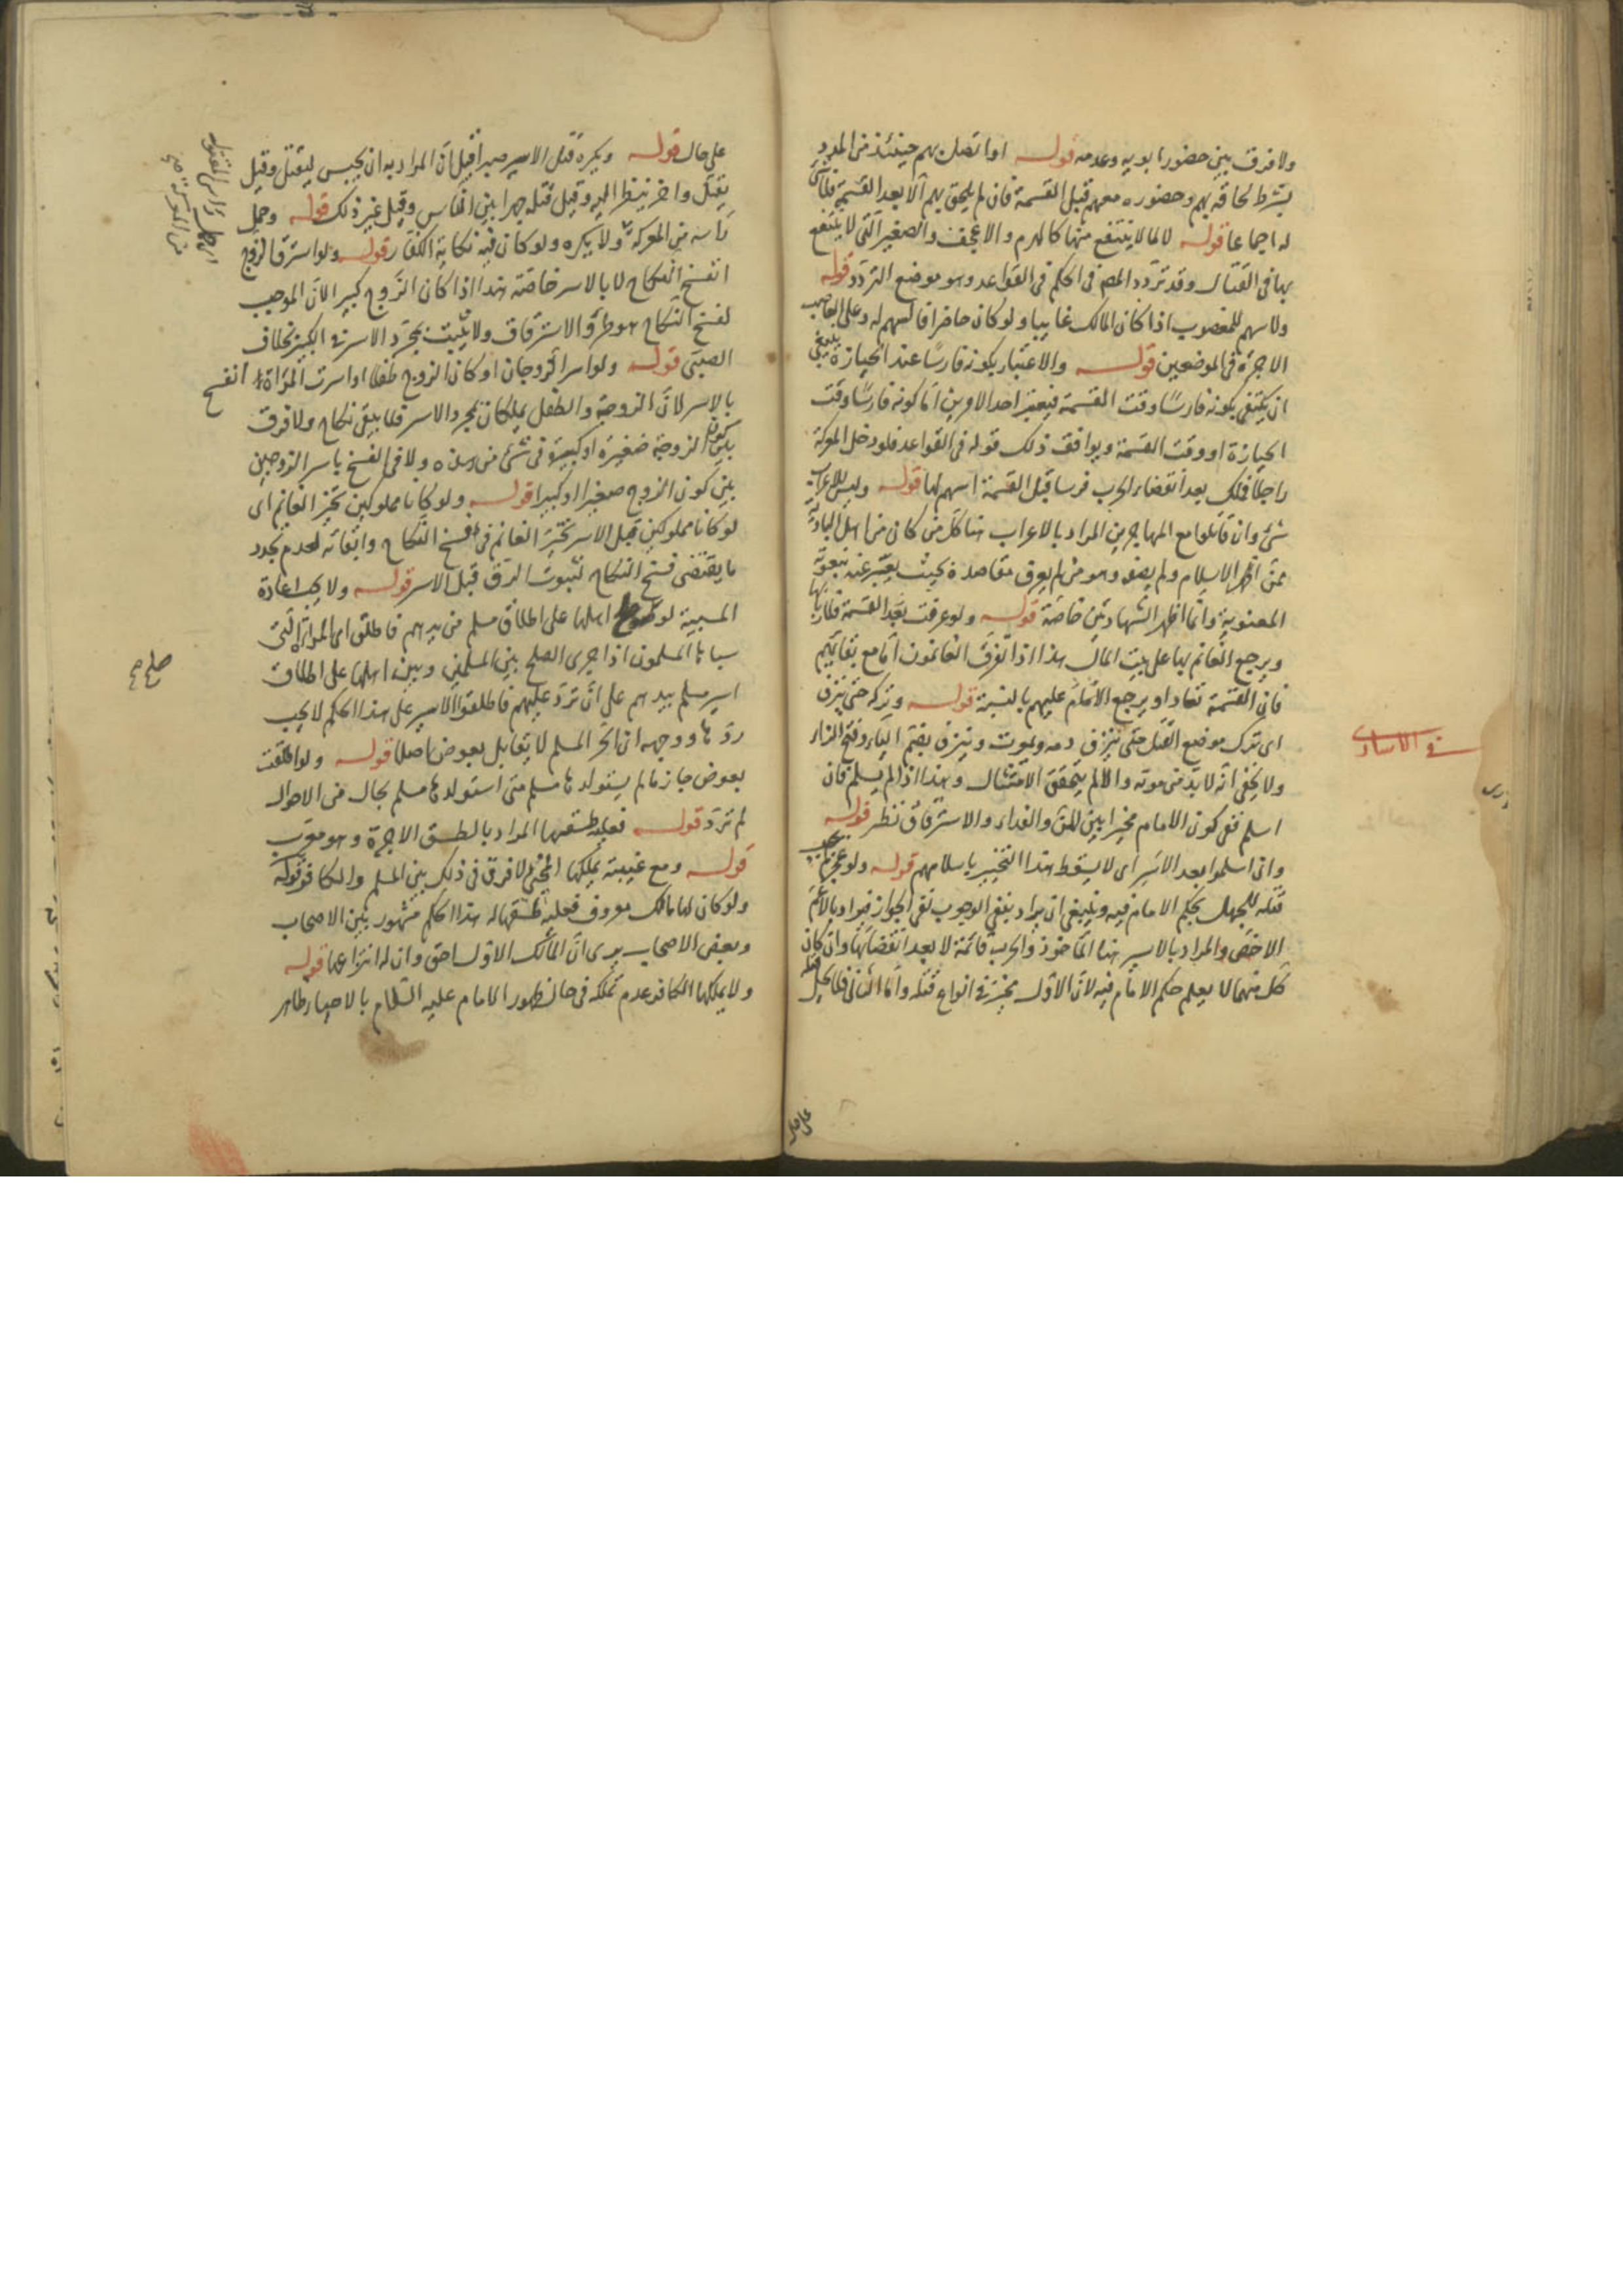 ولا فرق بين حضور ابويه وعدمه قوله او اتصل بهم حينئذ من المدد
يشترط لحاقه بهم وحضوره معهم قبل القسمة فان لم يلحق بهم الا بعد القسمة فلا شئ
له اجماعا قوله لا لما لا ينتفع منها كالهرم والاعجف والصغير التى لا ينتفع
بها فى القتال وقد تردد المص فى الحكم فى القواعد وهو موضع التردد قوله
ولا سهم للمغصوب اذا كان المالك غايبا ولو كان حاضرا فالسهم له وعلى الغاصب
الاجرة فى الموضعين قوله والاعتبار بكونه فارسا عند الحيازة ينبغى
ان يكتفى بكونه فارسا وقت القسمة فيعتبر احد الامرين اما كونه فارسا وقت
الحيازة او وقت القسمة ويوافق ذلك قوله فى القواعد فلو دخل المعركة
راجلا فملك بعد انقضاء الحرب فرسا قبل القسمة اسهم لها قوله وليس للاعراب
شئ وان قاتلوا مع المهاجرين المراد بالاعراب هنا كل من كان من اهل البادية
ممن اظهر الاسلام ولم يصفه وهو من لم يعرف مقاصده بحيث يعبر عنه بنعوته
المعنوية وانما اظهر الشهادتين خاصة قوله ولو عرفت بعد القسمة فلاربابها
ويرجع الغانم بها على بيت المال هذا اذا تفرق الغانمون اما مع بقائهم
فان القسمة تعاد او يرجع الامام عليهم بالنسبة قوله وتركه حتى ينزف
اى ترك موضع القتل حتى ينزف دمه ويموت وينزف بضم الياء وفتح الزاء
ولا يخفى انه لابد من موته والا لم يتحقق الامتثال وهذا اذا لم يسلم فان
اسلم ففى كون الامام مخيرا بين المن والفداء والاسترقاق نظر قوله
وان اسلموا بعد الاسر اى لا يسقط هذا التخيير باسلامهم قوله ولو عجز لم يجب
قتله للجهل بحكم الامام فيه وينبغى ان يراد بنفى الوجوب نفى الجواز فيراد بالاعم
الاخص والمراد بالاسير هنا الماخوذ والحرب قائمة لا بعد انقضائها وان كان
كل منهما لا يعلم حكم الامام فيه لان الاول مخير فى انواع قتله واما الثانى فلا يحل قتله
على حال
فى الاسارى
على حال قوله ويكره قتل الاسير صبرا قيل ان المراد به ان يحبس ليقتل وقيل
يقتل واخر ينظر اليه وقيل قتله جهرا بين الناس وقيل غير ذلك قوله وحمل
راسه من المعركة ولا يكره ولو كان فيه نكاية الكفار قوله ولو استرق الزوج
انفسخ النكاح لا بالاسر خاصة هذا اذا كان الزوج كبيرا لان الموجب
لفسخ النكاح هو طرؤ الاسترقاق ولا يثبت بمجرد الاسر فى الكبير بخلاف
الصبى قوله ولو اسر الزوجان او كان الزوج طفلا او اسرت المراة انفسخ
بالاسر لان الزوجة والطفل يملكان بمجرد الاسر فلا يبقى نكاح ولا فرق
بين كون الزوجة صغيرة او كبيرة فى شئ من هذه ولا فى الفسخ باسر الزوجين
بين كون الزوج صغيرا او كبيرا قوله ولو كانا مملوكين تخير الغانم اى
لو كانا مملوكين قبل الاسر تخير الغانم فى فسخ النكاح وابقائه لعدم تجدد
ما يقتضى فسخ النكاح لثبوت الرق قبل الاسر قوله ولا يجب اعادة
المسبية لو صولح اهلها على اطلاق مسلم من يدهم فاطلق اى المراة التى
سباها المسلمون اذا جرى الصلح بين المسلمين وبين اهلها على اطلاق
اسير مسلم بيدهم على ان ترد عليهم فاطلقوا الاسير على هذا الحكم لا يجب
ردها ووجهه ان الحر المسلم لا يقابل بعوض اصلا قوله ولو اطلقت
بعوض جاز ما لم يستولدها مسلم متى استولدها مسلم بحال من الاحوال
لم ترد قوله فعليه طسقها المراد بالطسق الاجرة وهو معرب
قوله ومع غيبته يملكها المحيى لا فرق فى ذلك بين المسلم والكافر قوله
ولو كان لها مالك معروف فعليه طسقها له هذا الحكم مشهور بين الاصحاب
وبعض الاصحاب يرى ان المالك الاول احق وان له انتزاعها قوله
ولا يملكها الكافر عدم تملكه فى حال ظهور الامام عليه السلام بالاحياء ظاهر
من المعركة
صلح